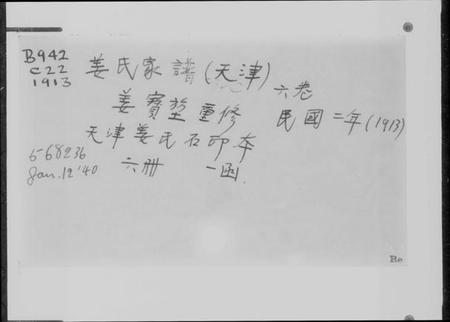 B942
C22
1913
姜氏家譜(天津)
六卷
姜寶堃重修
民國二年(1913)
天津姜氏石印本
六冊 一函.
568236
Jan.12'40
Re